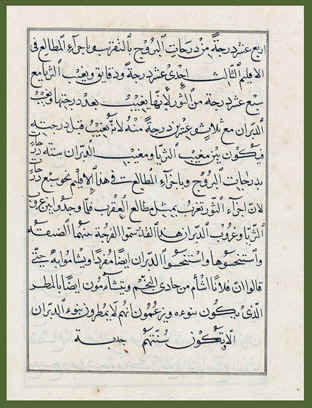 اربع عشر درجة من درجات البروج بالتقريب وباجزاء المطالع فى
الاقليم الثالث احدى عشر درجة ودقايق ويغيب الثريا مع
سبع عشر درجة من الثور لانها تغيب بعد درجتها ويغيب
الدبران مع ثلاث وعشرين درجة منه لانه يغيب قبل درجته
فيكون بين مغيب الثريا ومغيب الدبران ستة درج
بدرجات البروج وباجزاء المطالع فى هذا الاقليم نحو سبع درج
لان اجزاء الثور تغرب بمثل طالع العقرب فما وجدوا بين غروب
الثريا وغروب الدبران هذه القلة سموا الفرجة بينهما الضيقة
واستنحسوها واستنحسوا الدبران ايضا مفردا وتشاموا به حتى
قالوا ان فلانا اشأم من حادى النجم ويتشاءمون ايضا بالمطر
الذى يكون بنوءه ويزعمون انهم لا يمطرون بنوء الدبران
الا وتكون سنتهم جدبة